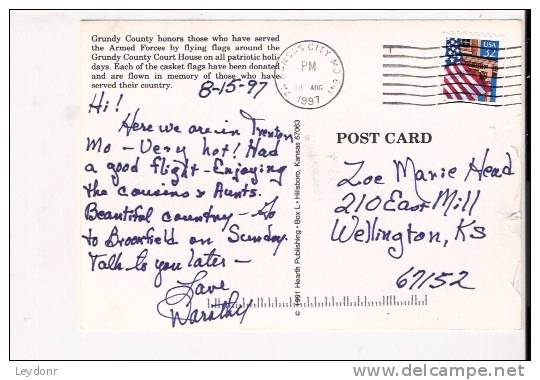 Grundy County honors those who have served
the Armed Forces by flying flags around the
Grundy County Court House on all patriotic holi-
days. Each of the casket flags have been donated
and are flown in memory of those who have
served their country.
8-15-97
Hi!
Here we are in Trenton
Mo - Very hot! Had
a good flight - Enjoying
the cousins & Aunts.
Beautiful country - Go
to Brookfield on Sunday.
Talk to you later -
Love
Dorothy
© 1991 Hearth Publishing • Box L • Hillsboro, Kansas 67063
KANSAS CITY MO
PM
18 AUG
1997
USA
32
POST CARD
Zoe Marie Head
210 East Mill
Wellington, Ks
67152
Leydonr
www.delcampe.net